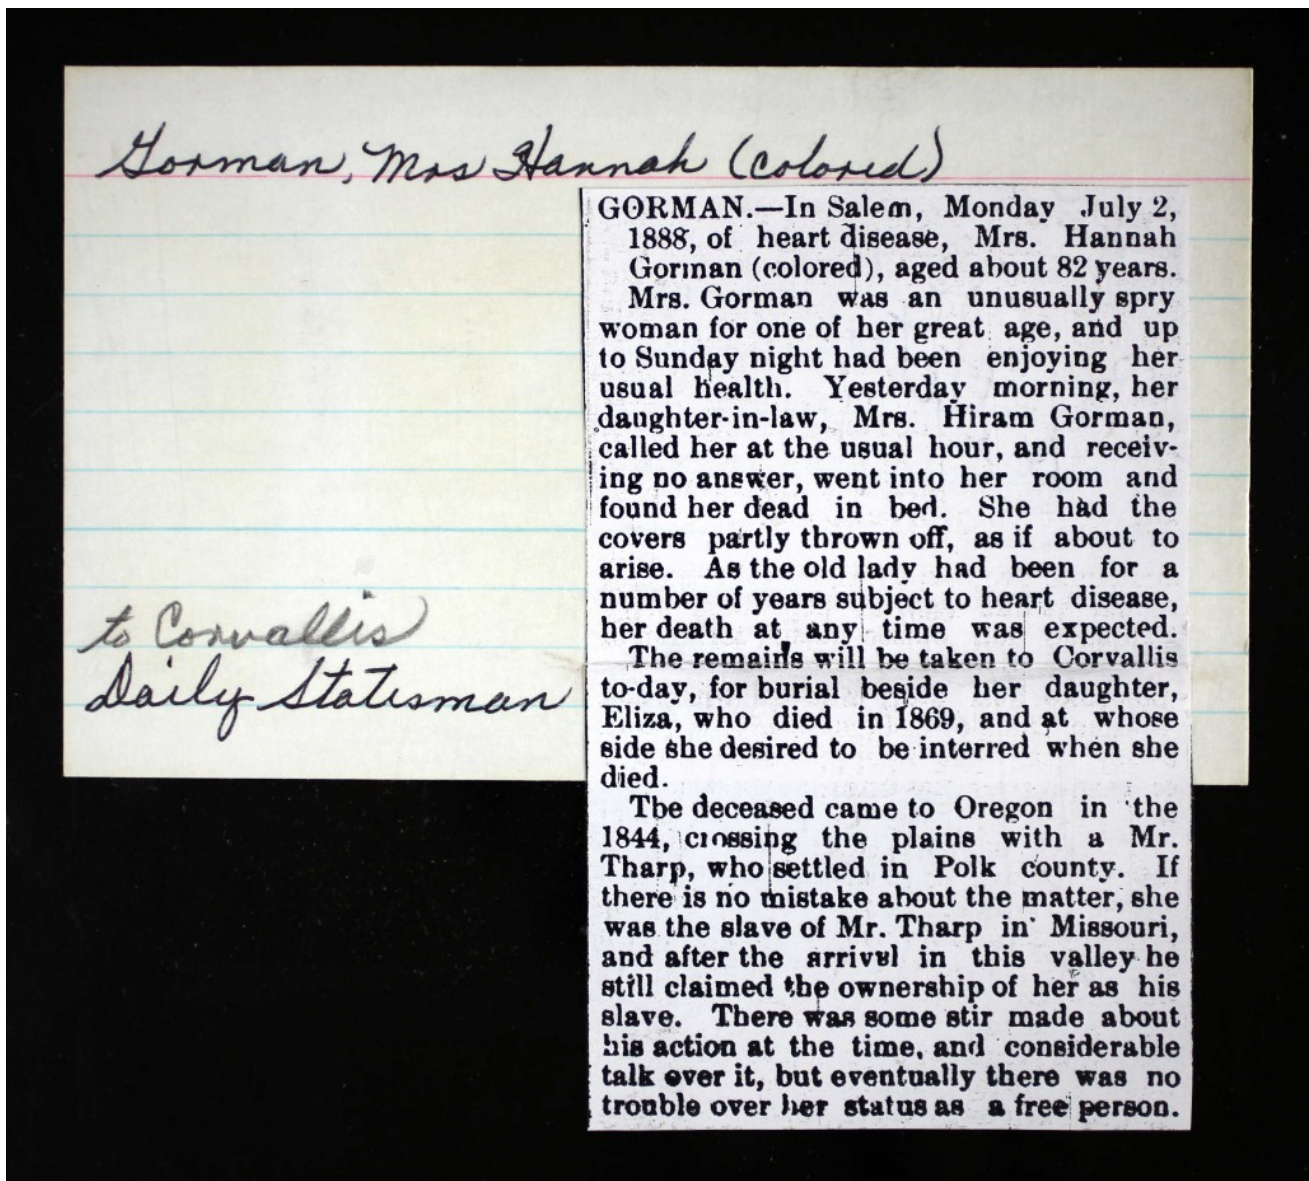 Gorman, Mrs Hannah (colored)
GORMAN.—In Salem, Monday July 2,
1888, of heart disease, Mrs. Hannah
Gorman (colored), aged about 82 years.
Mrs. Gorman was an unusually spry
woman for one of her great age, and up
to Sunday night had been enjoying her
usual health. Yesterday morning, her
daughter-in-law, Mrs. Hiram Gorman,
called her at the usual hour, and receiv-
ing no answer, went into her room and
found her dead in bed. She had the
covers partly thrown off, as if about to
arise. As the old lady had been for a
number of years subject to heart disease,
her death at any time was expected.
The remains will be taken to Corvallis
to-day, for burial beside her daughter,
Eliza, who died in 1869, and at whose
side she desired to be interred when she
died.
The deceased came to Oregon in the
1844, crossing the plains with a Mr.
Tharp, who settled in Polk county. If
there is no mistake about the matter, she
was the slave of Mr. Tharp in Missouri,
and after the arrival in this valley he
still claimed the ownership of her as his
slave. There was some stir made about
his action at the time, and considerable
talk over it, but eventually there was no
trouble over her status as a free person.
to Corvallis
Daily Statesman